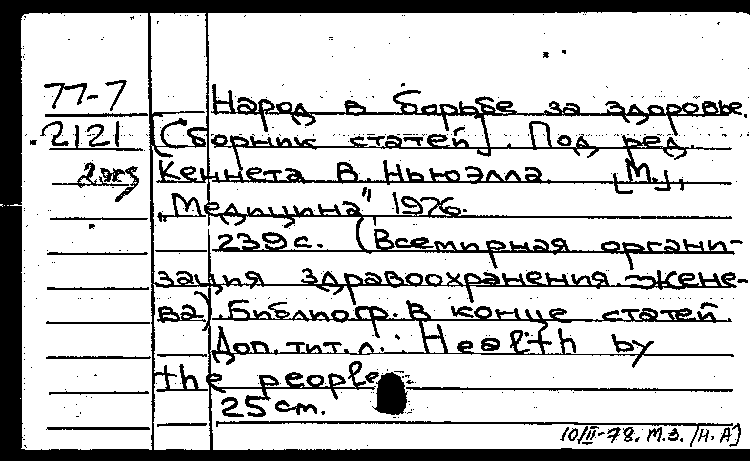 77-7 Народ в борьбе за здоровье.
2121 [Сборник статей]. Под ред.
2экз Кеннета В. Ньюэлла. [М.],
„Медицина", 1976.
239с. (Всемирная органи-
зация здравоохранения. Жене-
ва). Библиогр. в конце статей.
Доп. тит. л.: Health by
the people
25 cm.
10/II-78. М.З. /Н.А/